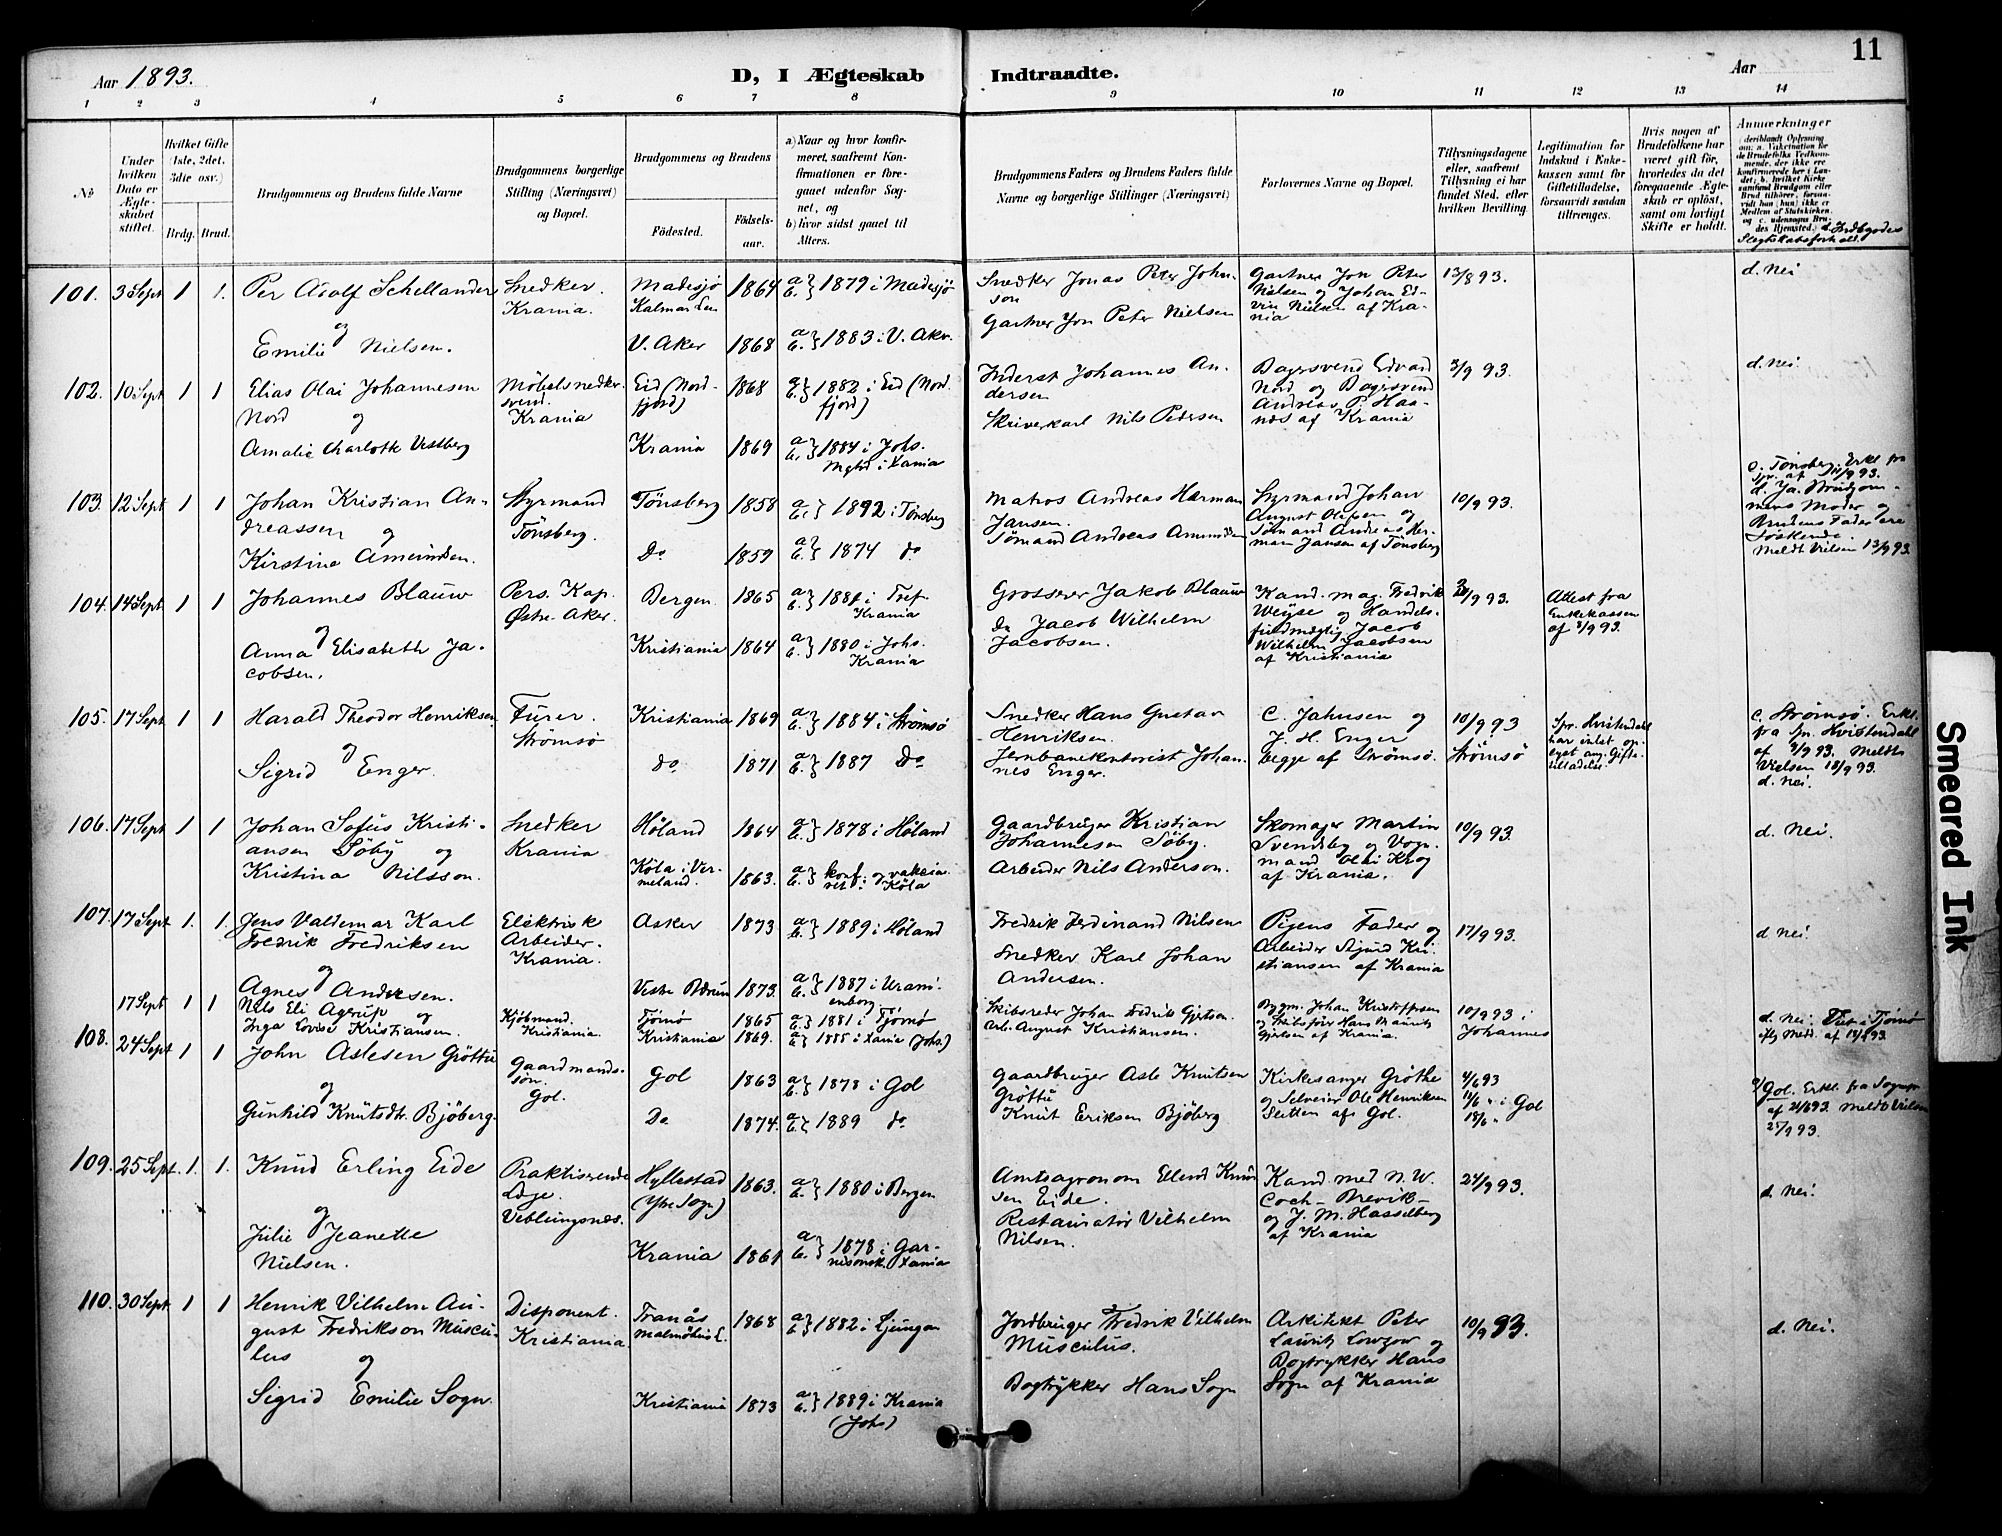 11
Aar 1893.
D, I Ægteskab Indtraadte.
Aar
1 2 3 4 5 6 7 8 9 10 11 12 13 14
No
Under hvilken Dato er Ægteskabet stiftet.
Hvilket Gifte (1ste, 2det, 3die osv.)
Brdg. Brud.
Brudgommens og Brudens fulde Navne
Brudgommens borgerlige Stilling (Næringsvei) og Bopæl.
Brudgommens og Brudens
Fødested. Fødselsaar.
a) Naar og hvor konfirmeret, saafremt Konfirmationen er foregaaet udenfor Sognet, og
b) hvor sidst gaaet til Alters.
Brudgommens Faders og Brudens Faders fulde Navne og borgerlige Stillinger (Næringsvei)
Forlovernes Navne og Bopæl.
Tillysningsdagene eller, saafremt Tillysning ei har fundet Sted, efter hvilken Bevilling.
Legitimation for Indskud i Enkekassen samt for Giftetilladelse, forsaavidt saadan tiltrænges.
Hvis nogen af Brudefolkene har været gift før, hvorledes da det foregaaende Ægteskab er opløst, samt om lovligt Skifte er holdt.
Anmærkninger
101. 3 Sept 1 1. Per Adolf Schellander og Emilie Nielsen.
Snedker. Krania.
Madesjö Kalmar Len 1864 a b } 1879 i Madesjö
V. Aker 1868 a b } 1883 i V. Aker
Snedker Jonas Peter Johnson
Gartner Jon Peter Nielsen
Gartner Jon Peter Nielsen og Johan Edvin Nielsen af Krania
13/8 93.
d. Nei
102. 10 Sept 1 1 Elias Olai Johannesen Nord og Amalie Charlotte Vestberg
Møbelsnedkersvend. Krania
Eid (Nordfjord) 1868 a b } 1882 i Eid (Nordfjord)
Krania 1869 a b } 1884 i Johs. Mghd i Xania
Inderst Johannes Andersen
Skriverkarl Nils Pedersen
Bagersvend Edvard Nord og Bagersvend Andreas P. Haanæs af Krania
3/9 93.
d. Nei.
103. 12 Sept 1 1 Johan Kristian Andreassen og Kirstine Amundsen.
Styrmand Tønsberg.
Tønsberg 1858 a b } 1892 i Tønsberg
Do 1859 a b } 1874 do
Matros Andreas Herman Jansen.
Sømand Andreas Amundsen
Styrmand Johan August Olsen og Sømand Andreas Herman Jansen af Tønsberg
10/9 93.
c. Tønsberg. Erkl. fra Spr. af 11/9 93.
d. Ja. Brudgommens Moder og Brudens Fader ere Søskende. Meldt Vielsen 13/9 93.
104. 14 Sept 1 1 Johannes Blauw og Anna Elisabeth Jacobsen.
Pers. Kap. Østre Aker.
Bergen 1865 a b } 1881 i Tref. Krania
Kristiania 1864 a b } 1880 i Johs. Krania
Grosserer Jakob Blauw
do Jacob Wilhelm Jacobsen.
Kand. mag. Fredrik Weyse og Handelsfuldmægtig Jacob Wilhelm Jacobsen af Kristiania
/9 93.
Attest fra Enkekassen af 8/9 93.
105. 17 Sept 1 1 Harald Theodor Henriksen og Sigrid Enger.
Furer. Strømsø
Kristiania 1869 a b } 1884 i Strømsø
do 1871 a b } 1887 Do
Snedker Hans Gustav Henriksen.
Jernbanekontorist Johannes Enger.
C. Jahnsen og J. H. Enger begge af Strømsø.
10/9 93 Strømsø
Spr. Hvistendahl har intet oplyst ang. Giftetilladelse.
c. Strømsø. Erkl. fra Spr. Hvistendahl af 9/9 93. Meldt Vielsen 18/9 93.
d. Nei.
106. 17 Sept 1 1 Johan Sofus Kristiansen Søby og Kristina Nilsson.
Snedker Krania
Høland 1864 a b } 1878 i Høland
Köla i Vermeland. 1863. a b } konf. og vakcineret i Köla
Gaardbruger Kristian Johannesen Søby.
Arbeider Nils Anderson.
Skomager Martin Svendsby og Vognmand Olai Krog af Krania.
10/9 93.
d. Nei.
107. 17 Sept 1. 1. Jens Valdemar Karl Fredrik Fredriksen og Agnes Andersen.
Elektrisk Arbeider. Krania.
Asker 1873 a b } 1889 i Høland
Vestre Bærum 1873. a b } 1887 i Uranienborg.
Fredrik Ferdinand Nilsen
Snedker Karl Johan Andersen.
Pigens Fader og Arbeider Sigurd Kristiansen af Krania
17/9 93.
d Nei.
17 Sept 1 1 Nils Eli Agerup og Inga Lovise Kristiansen.
Kjøbmand. Kristiania.
Tjømø 1865 a b } 1881 i Tjømø
Kristiania 1869. a b } 1885 i Xania (Johs.)
Skibsreder Johan Fredrik Gjertsen.
Arb. August Kristiansen.
Bygm. Johan Kristoffersen og Skibsfører Hans Mauritz Gjertsen af Krania.
10/9 93 i Johannes
d. Nei. Viet i Tjømø iflg Medd. af 18/9 93.
108. 24 Sept 1 1 John Aslesen Grøtte og Gunhild Knutsdtr. Bjøberg.
Gaardmandssøn. Gol.
Gol 1863 a b } 1878 i Gol
Do 1874. a b } 1889 do
Gaardbruger Asle Knutsen Grøtte
Knut Eriksen Bjøberg
Kirkesanger Grøthe og Selveier Ole Henriksen Sletten af Gol.
4/6 93 11/6 " i Gol 18/6 "
c/ Gol. Erkl. fra Sognepr af 21/6 93. Meldt Vielsen 25/9 93.
109. 25 Sept. 1. 1. Knud Erling Eide og Julie Jeanette Nielsen.
Praktiserende Læge. Veblungsnes.
Hyllestad (Ytre Sogn) 1863. a b } 1880 i Bergen
Krania 1861 a b } 1878 i Garnisonsk. Xania
Amtsagronom Ellend Knudsen Eide.
Restauratør Vilhelm Nilsen.
Kand. med N. W. Coch - Brevik - og J. M. Hasselberg af Krania
24/9 93.
d. Nei.
110. 30 Sept 1 1 Henrik Vilhelm August Fredrikson Musculus og Sigrid Emilie Sogn.
Disponent. Kristiania.
Tranås Malmöhus L. 1868 a b } 1882 i Ljungan
Kristiania 1873 a b } 1889 i Krania (Johs)
Jordbruger Fredrik Vilhelm Musculus.
Bogtrykker Hans Sogn
Arkitekt Peter Lauritz Lowzow og Bogtrykker Hans Sogn af Krania
10/9 93.
d. Nei.
Smeared Ink